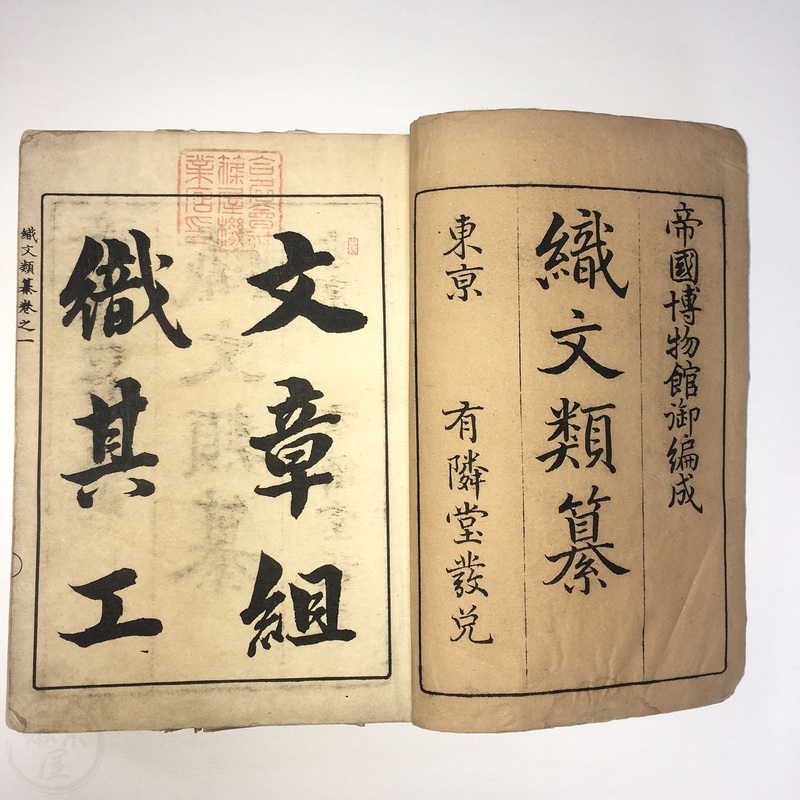 帝國博物館御編成
織文類纂
東亰 有隣堂發兌
文章組
織其工
織文類纂卷之一